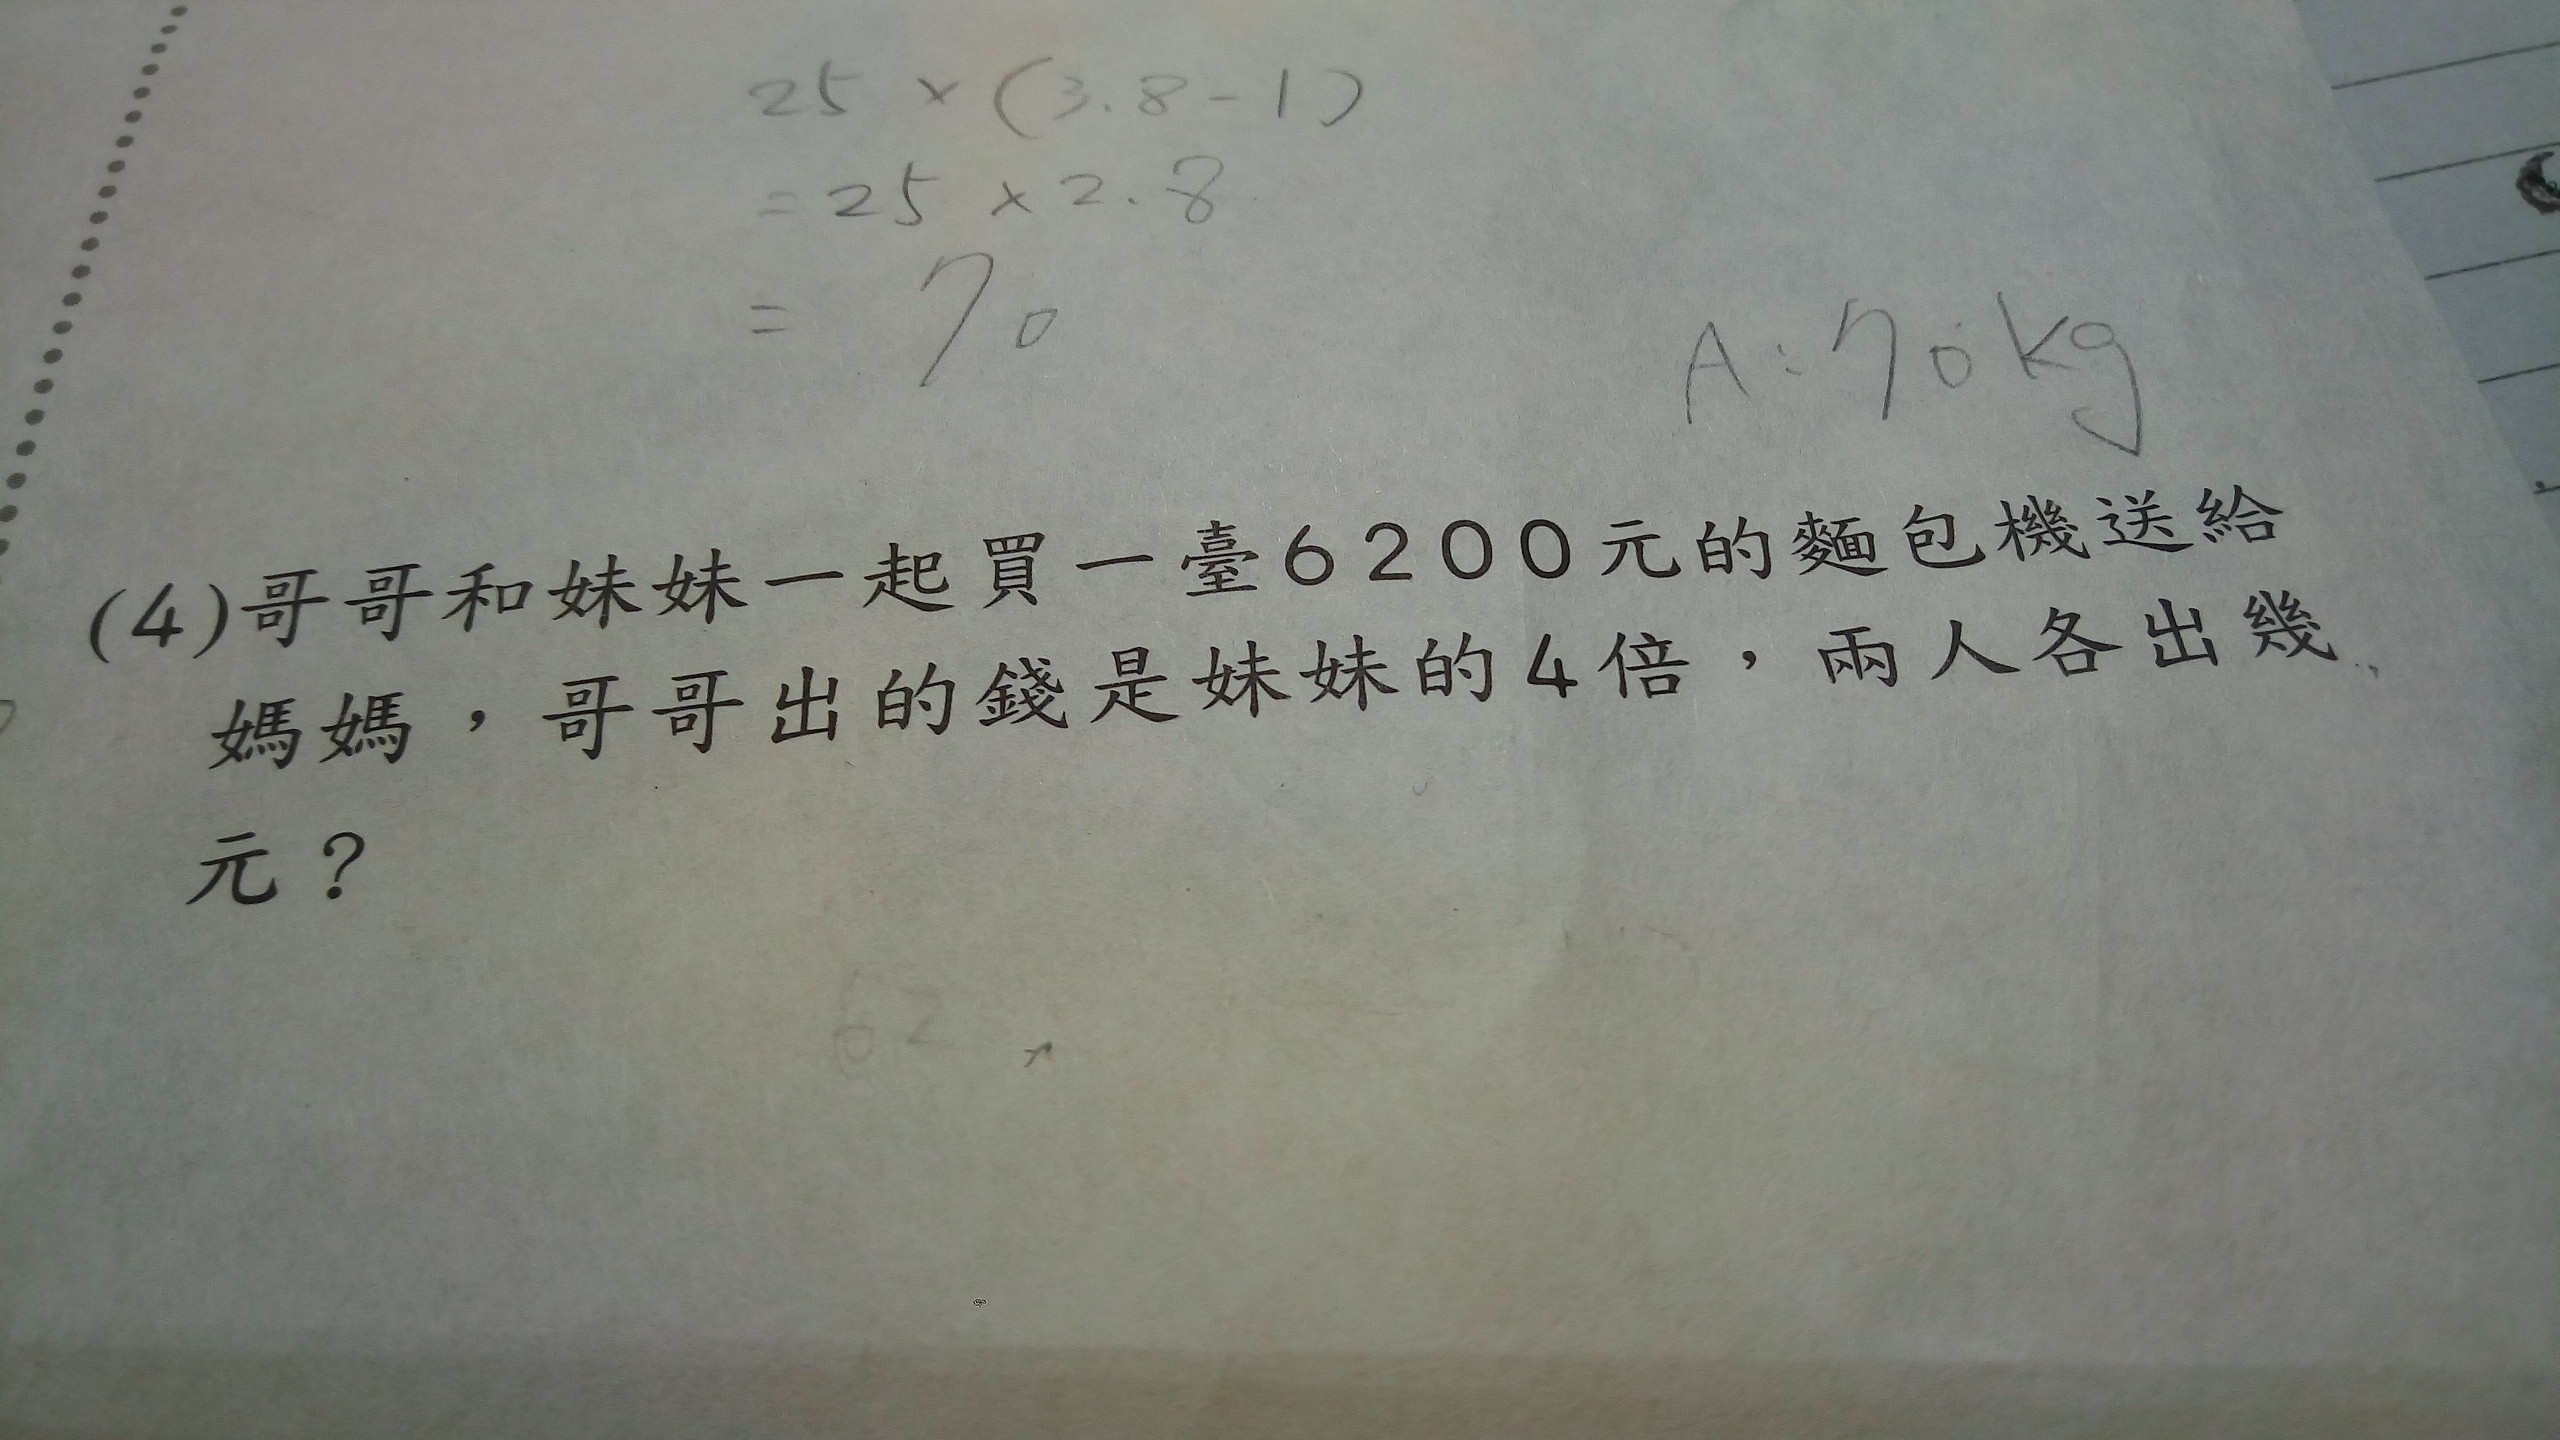 25 × (3.8-1)
= 25 × 2.8
= 70
A:70kg
(4)哥哥和妹妹一起買一臺6200元的麵包機送給
媽媽，哥哥出的錢是妹妹的4倍，兩人各出幾
元？
62